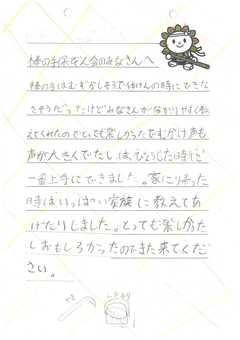 様の手保存会のみなさんへ
棒の手はむずかしそうで体けんの時にできな
さそうだったけどみなさんが分かりやすく教
えてくれたのでとても楽しかったです。かけ声も
声が大きくでたし
一番上手にできました。家に帰った
時はいっぱい家族に教えてあ
げたりしました。とっても楽しかった
しおもしろかったのでまた来てくださ
さい。